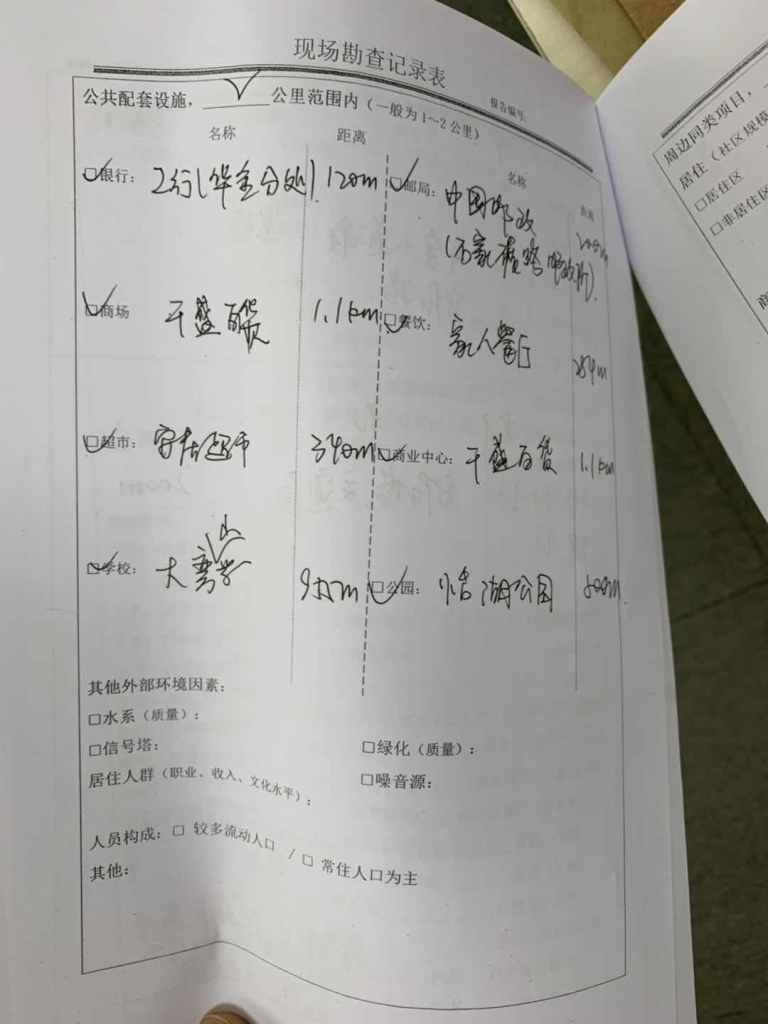 现场勘查记录表
报告编号:
公共配套设施，√公里范围内（一般为1～2公里）
名称 距离 名称 距离
☑银行： 工行(华金分处) 120m ☑邮局： 中国邮政
☑商场 千盛百货 1.1km ☑餐饮： 家人餐厅 284m
☑超市： 超市 340m ☑商业中心： 千盛百货 1.1km
☑学校： 大湾小学 955m ☑公园： 湖公园 800m
其他外部环境因素：
□水系（质量）：
□信号塔： □绿化（质量）：
居住人群（职业、收入、文化水平）： □噪音源：
人员构成：□ 较多流动人口 / □ 常住人口为主
其他：
周边同类项目，
居住（社区规模
□居住区
□非居住区